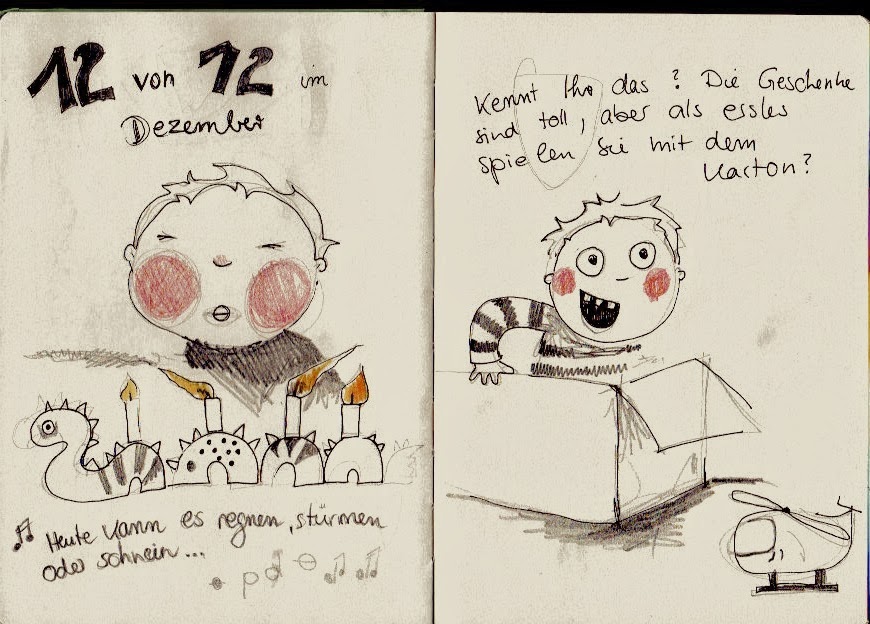 12 von 12 im
Dezember
Heute kann es regnen, stürmen
oder schnein...
Kennt Ihr das? Die Geschenke
sind toll, aber als erstes
spielen sie mit dem
Karton?